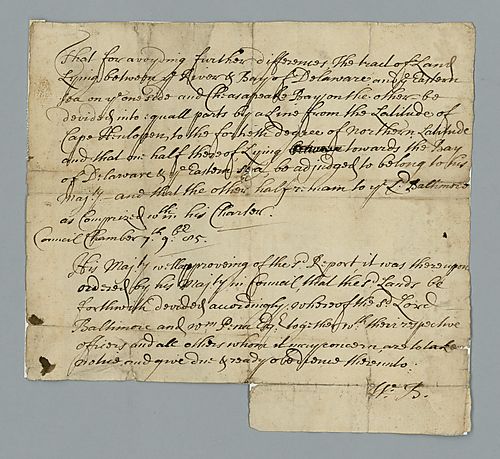 That for avoyding further differences The tract of Land
Lying between ye River & Bay of Delaware and ye Eastern
Sea on ye one side and Cheasapeake Bay on the other be
devided into equall parts by a Line from the Latitude of
Cape Hinlopen to the fortieth degree of Northern Latitude
and that one half thereof Lying towards the Bay
of Delaware & ye Eastern Sea be adjudged to belong to his
Majty and that the other half remain to ye Ld Baltimore
as Comprized wthin his Charter
Council Chamber 7th 9br 85.
His Majty well approveing of the sd Report it was thereupon
ordered by his Majty in Council that the sd Lands be
forthwith devided accordingly whereof the sd Lord
Baltimore and Wm Penn Esqr together wth their respective
officers and all others whom it may concern are to take
notice and give due & ready obedience thereunto